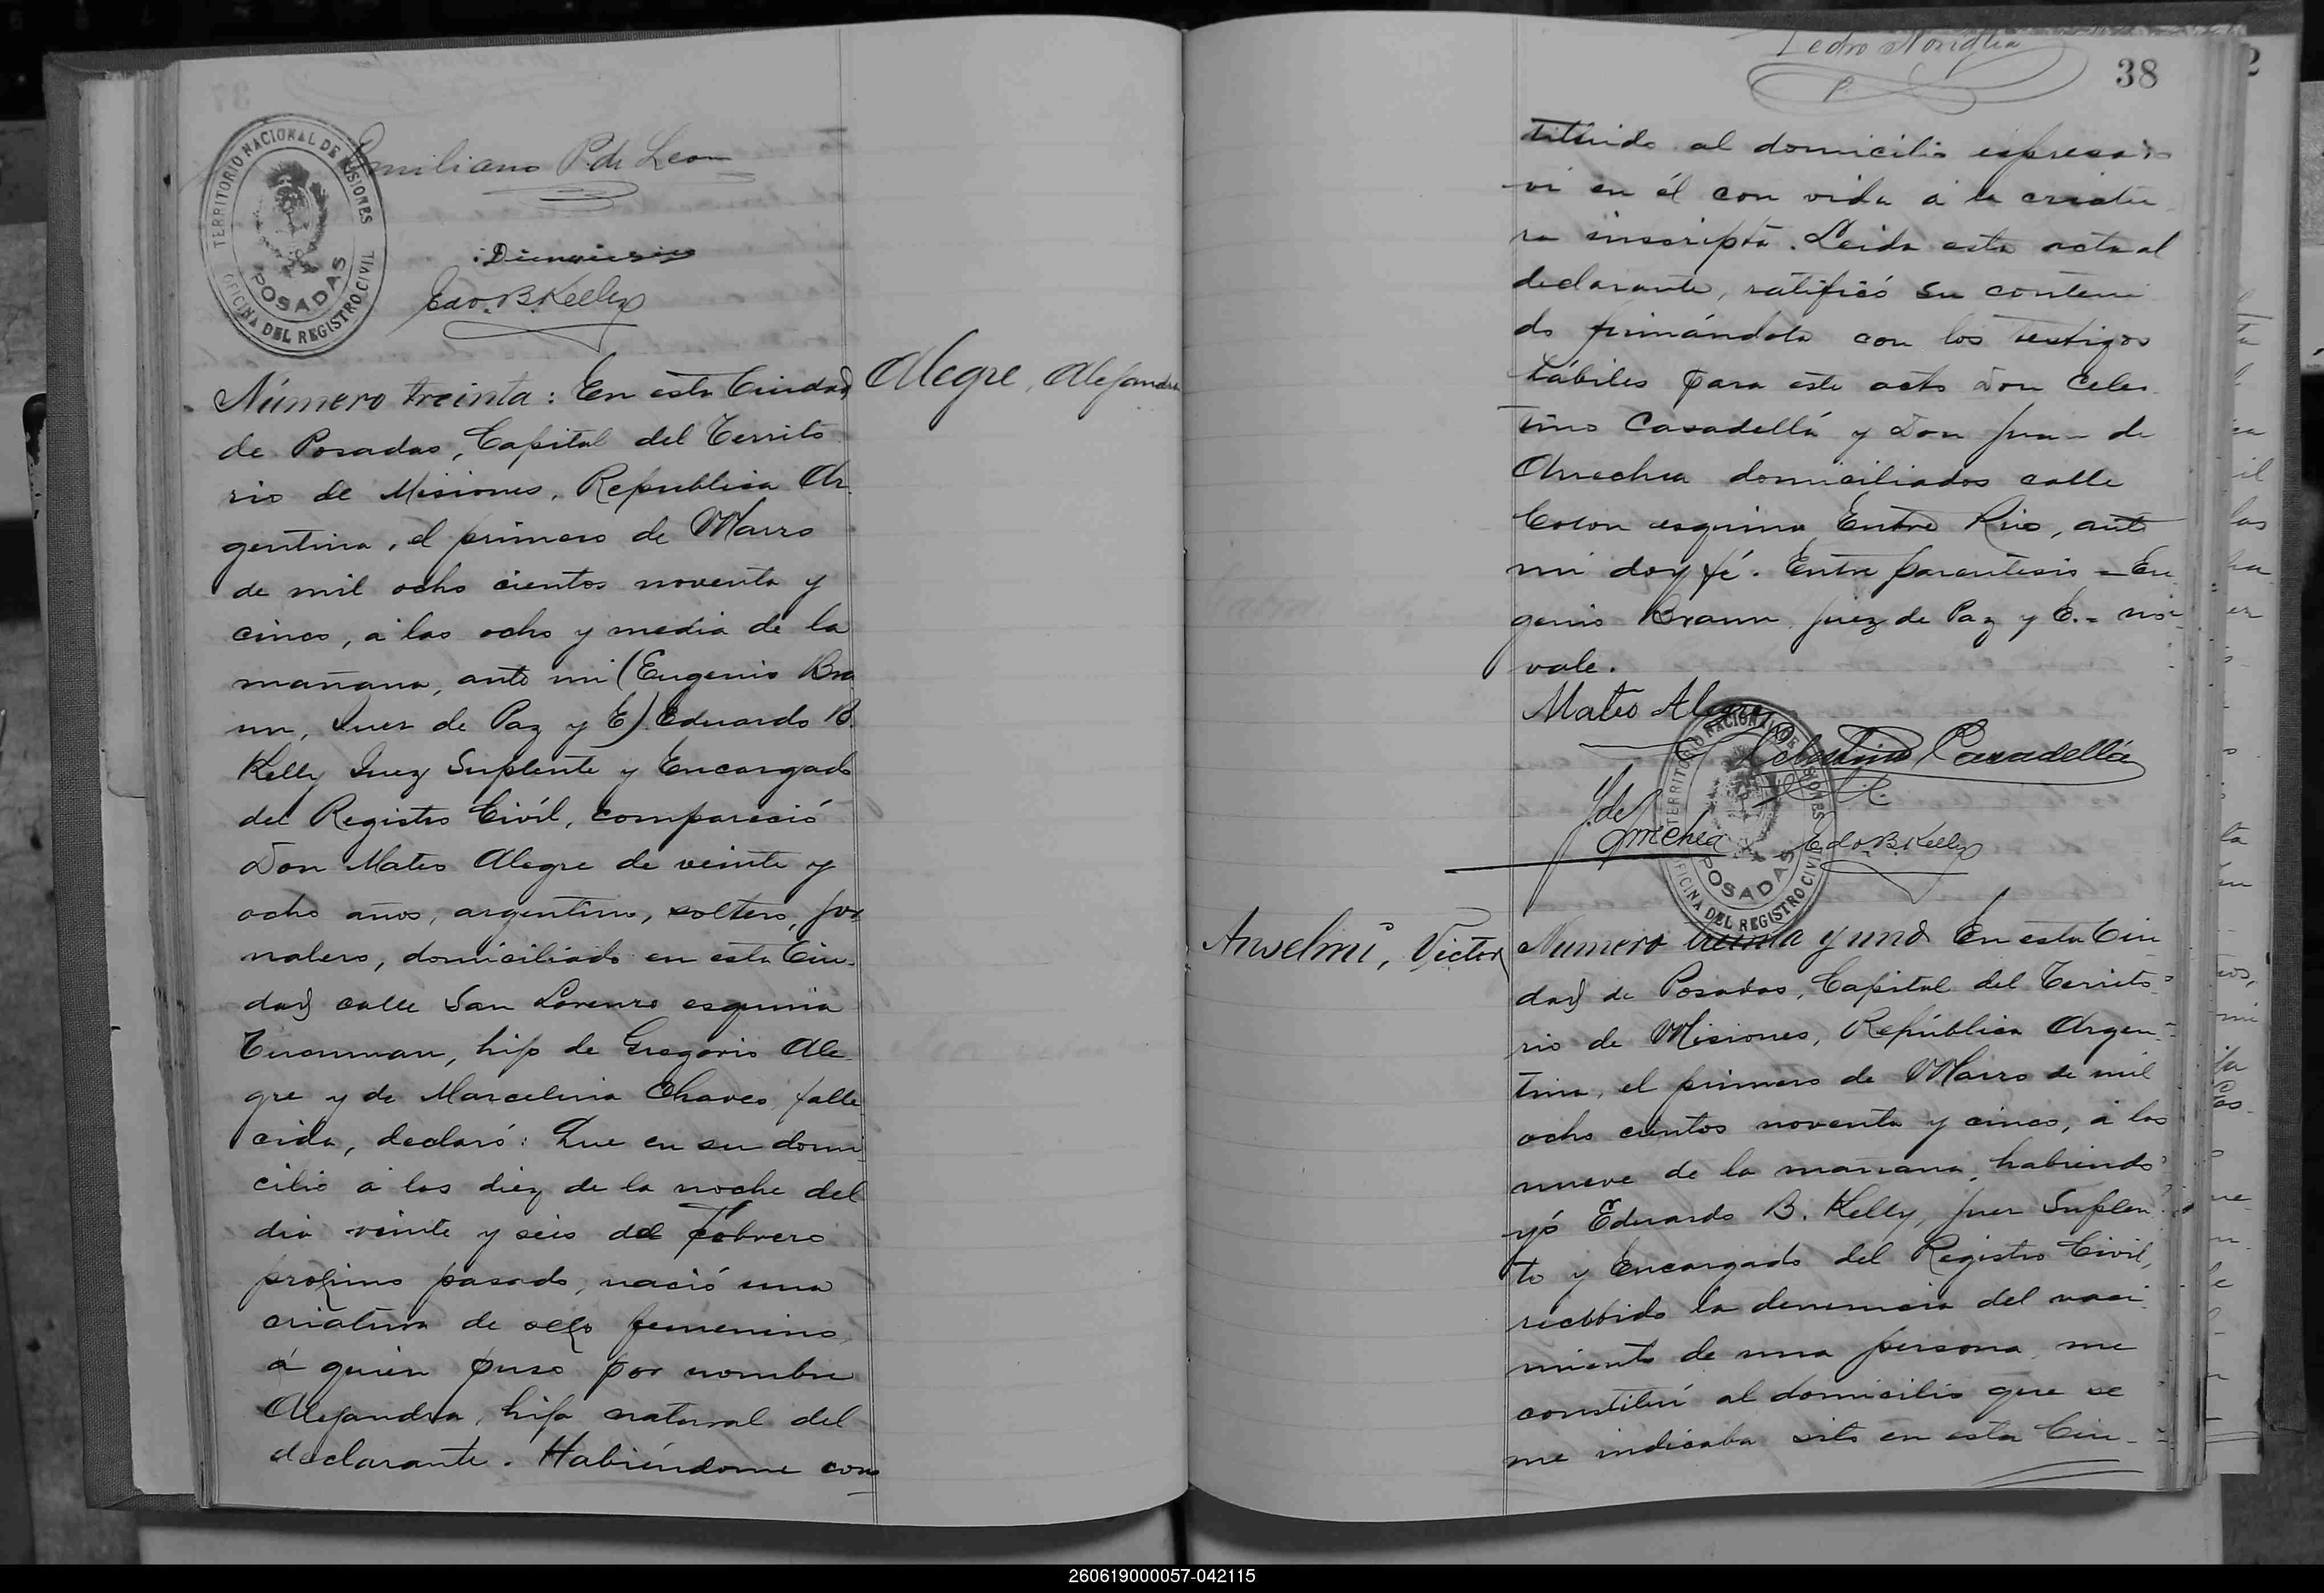 TERRITORIO NACIONAL DE MISIONES
POSADAS
OFICINA DEL REGISTRO CIVIL
Emiliano P. de Leon
Edo. B. Kelly
Alegre, Alejandra
Número treinta: En esta Ciudad
de Posadas, Capital del Territo
rio de Misiones, Republica Ar
gentina, el primero de Marzo
de mil ocho cientos noventa y
cinco, á las ocho y media de la
mañana, ante mi (Eugenio Bra
un, Juez de Paz y E) Eduardo B.
Kelly Juez Suplente y Encargado
del Registro Civil, compareció
Don Mateo Alegre de veinte y
ocho años, argentino, soltero, jor
nalero, domiciliado en esta Ciu-
dad calle San Lorenzo esquina
Tucuman, hijo de Gregorio Ale-
gre y de Marcelina Chaves falle
cida, declaró: Que en su domi
cilio á las diez de la noche del
dia veinte y seis del Febrero
proximo pasado, nació una
criatura de sexo femenino,
á quien puso por nombre
Alejandra, hija natural del
declarante. Habiéndome cons
38
tituido al domicilio espresado
vi en él con vida á la criatu
ra inscripta. Leida esta acta al
declarante, ratificó su conteni
do firmándola con los testigos
hábiles para este acto Don Celes-
tino Casadellá y Don Juan de
Arrechea domiciliados calle
Colon esquina Entre Rios, ante
mi doy fé. Entre parentesis = Eu
genio Braun, Juez de Paz y E. = no
vale.
Mateo Alegre
Celestino Casadellá
J. de
Arrechea
Edo. B. Kelly
TERRITORIO NACIONAL DE MISIONES
POSADAS
OFICINA DEL REGISTRO CIVIL
Anselmi, Victor
Numero treinta y uno En esta Ciu
dad de Posadas, Capital del Territo-
rio de Misiones, República Argen-
tina, el primero de Marzo de mil
ocho cientos noventa y cinco, á las
nueve de la mañana, habiendo
yó Eduardo B. Kelly, Juez Suplen
te y Encargado del Registro Civil,
recibido la denuncia del naci
miento de una persona, me
constituí al domicilio que se
me indicaba sito en esta Ciu-
260619000057-042115